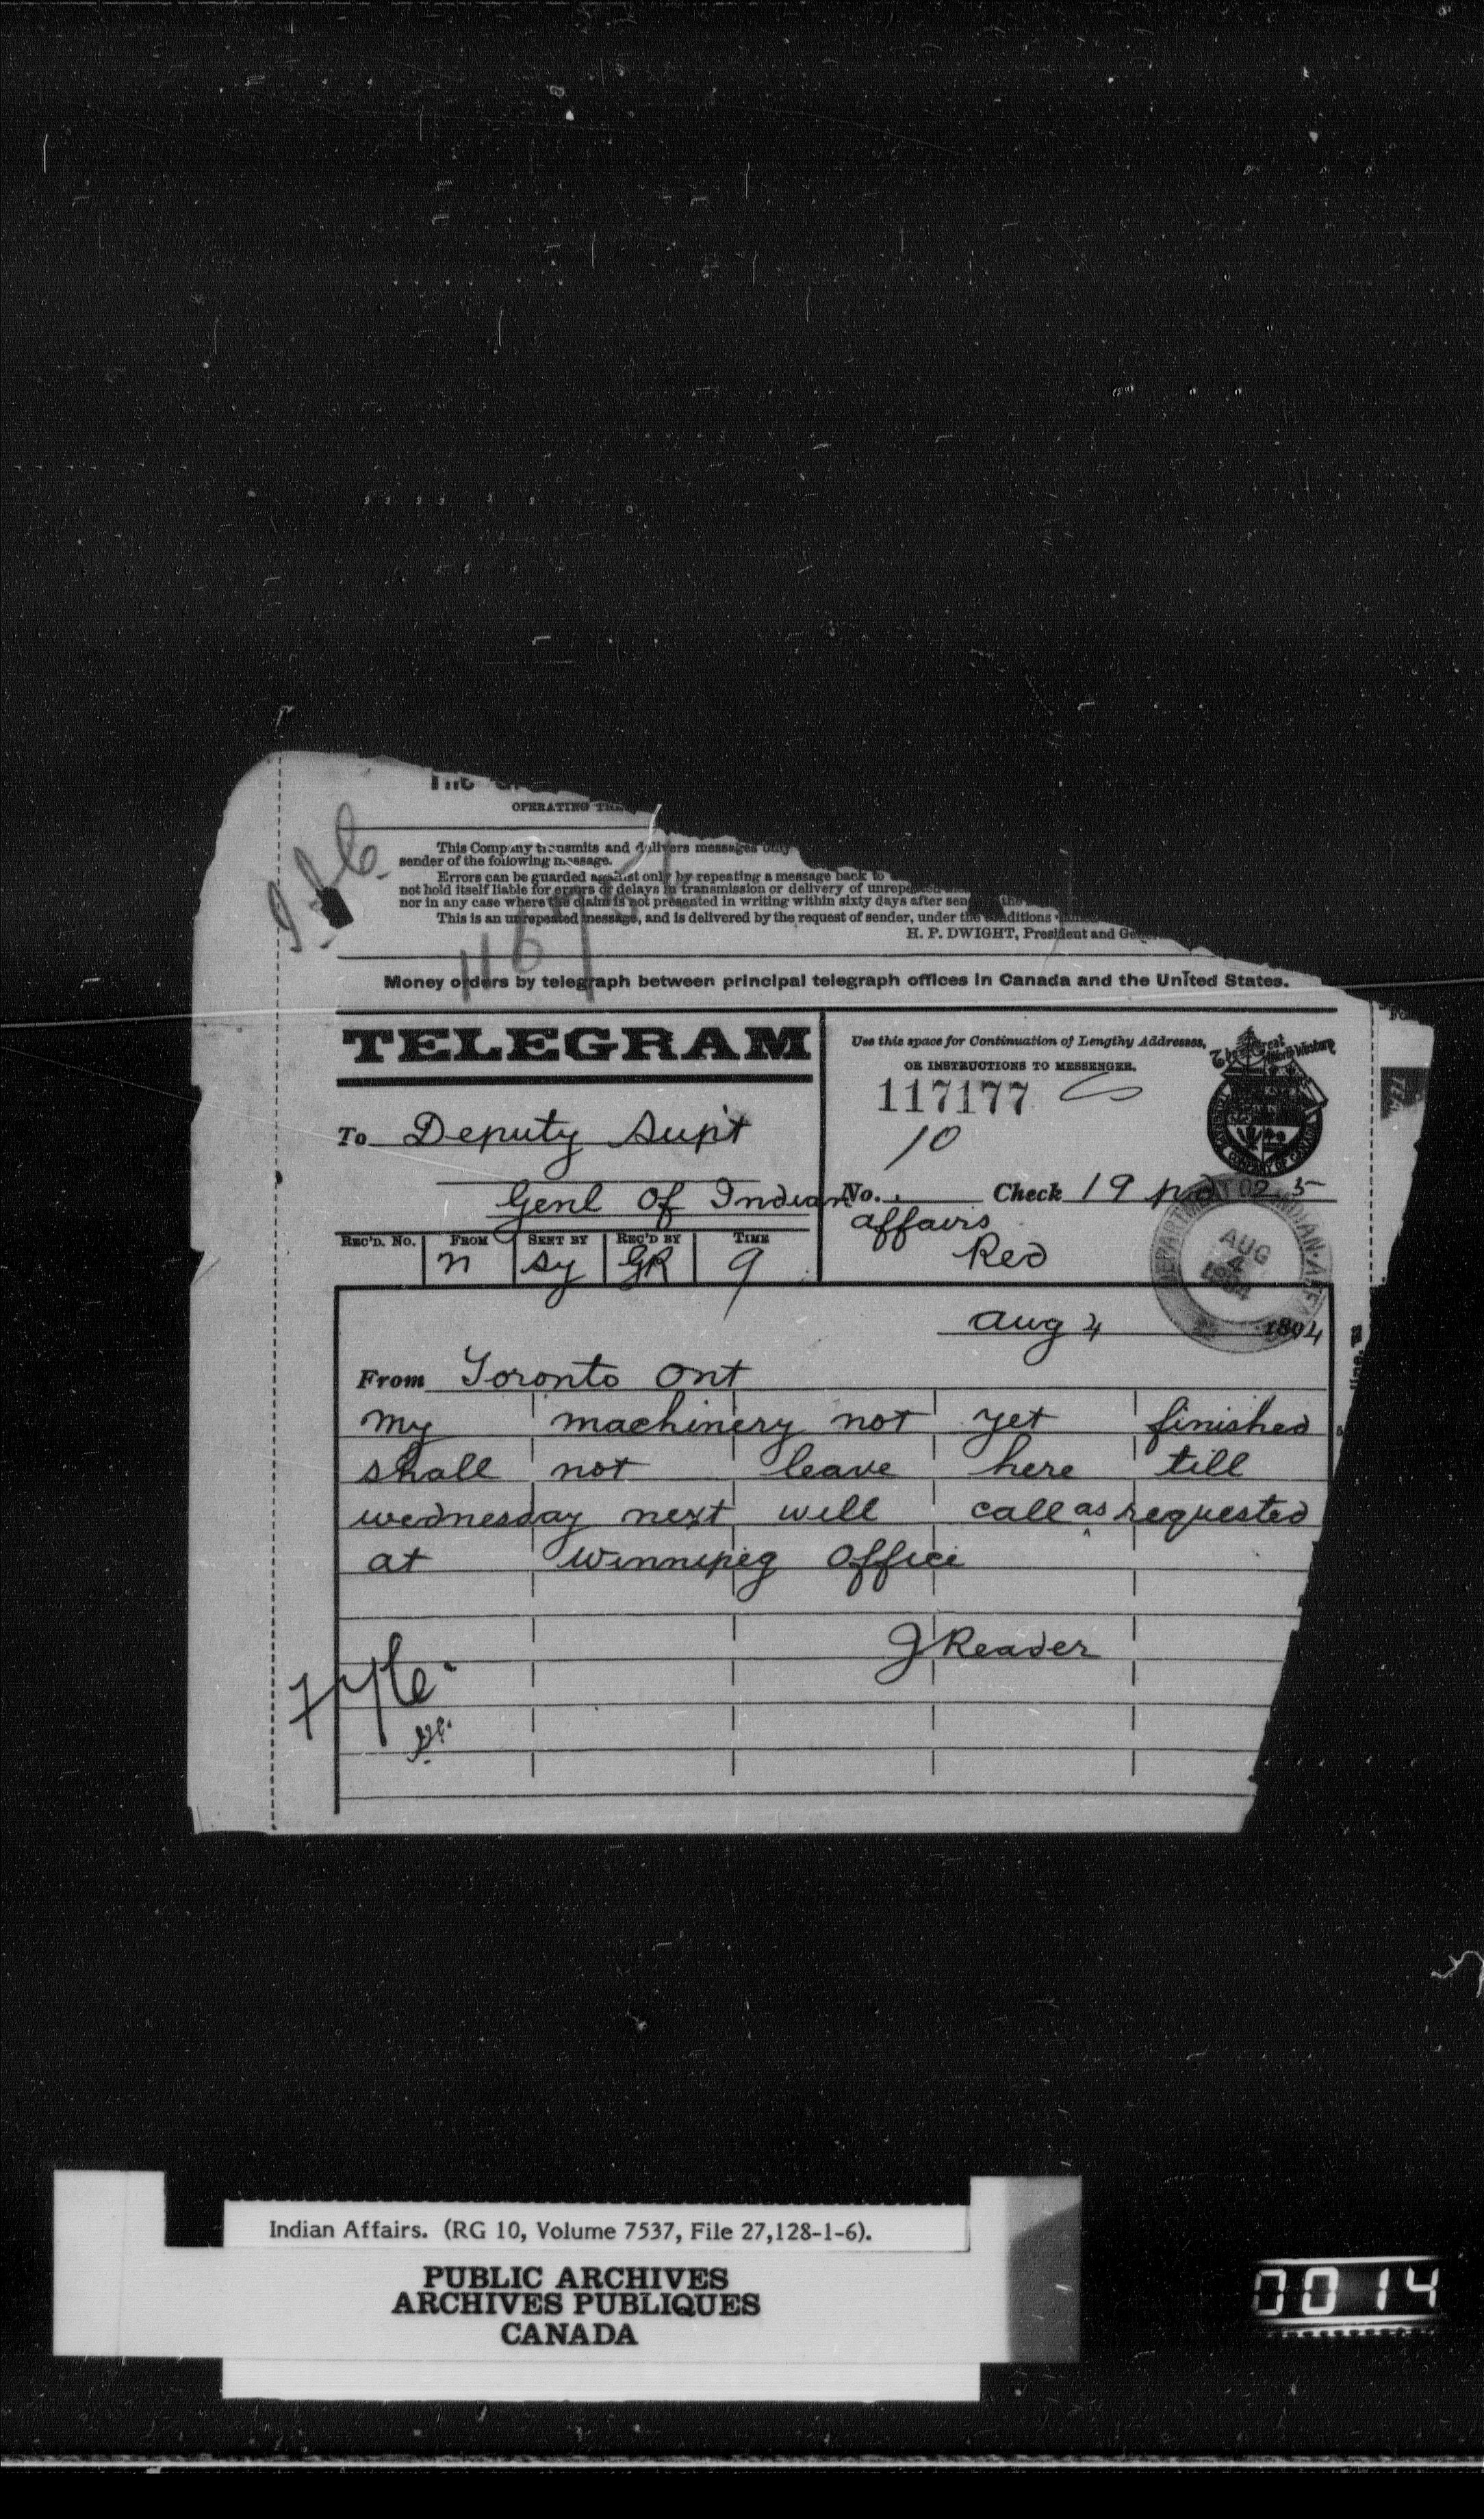 OPERATING
This Company transmits and delivers messages only
sender of the following message.
Errors can be guarded against only by repeating a message back to
not hold itself liable for errors or delays in transmission or delivery of unrepeated
nor in any case where the claim is not presented in writing within sixty days after sending the
This is an unrepeated message, and is delivered by the request of sender, under the conditions
H. P. DWIGHT, President and
Money orders by telegraph between principal telegraph offices in Canada and the United States.
TELEGRAM
Use this space for Continuation of Lengthy Addresses,
OR INSTRUCTIONS TO MESSENGER.
The Great North Western
117177
10
To Deputy Supt
Genl Of Indian
No. Check 19 pd 025
affairs
Red
REC'D. NO. FROM SENT BY REC'D BY TIME
n Sy GR 9
AUG 4
Aug 4 1894
From Toronto Ont
My machinery not yet finished
shall not leave here till
wednesday next will call as requested
at Winnipeg Office
J Reader
Indian Affairs. (RG 10, Volume 7537, File 27,128-1-6).
PUBLIC ARCHIVES
ARCHIVES PUBLIQUES
CANADA
0014